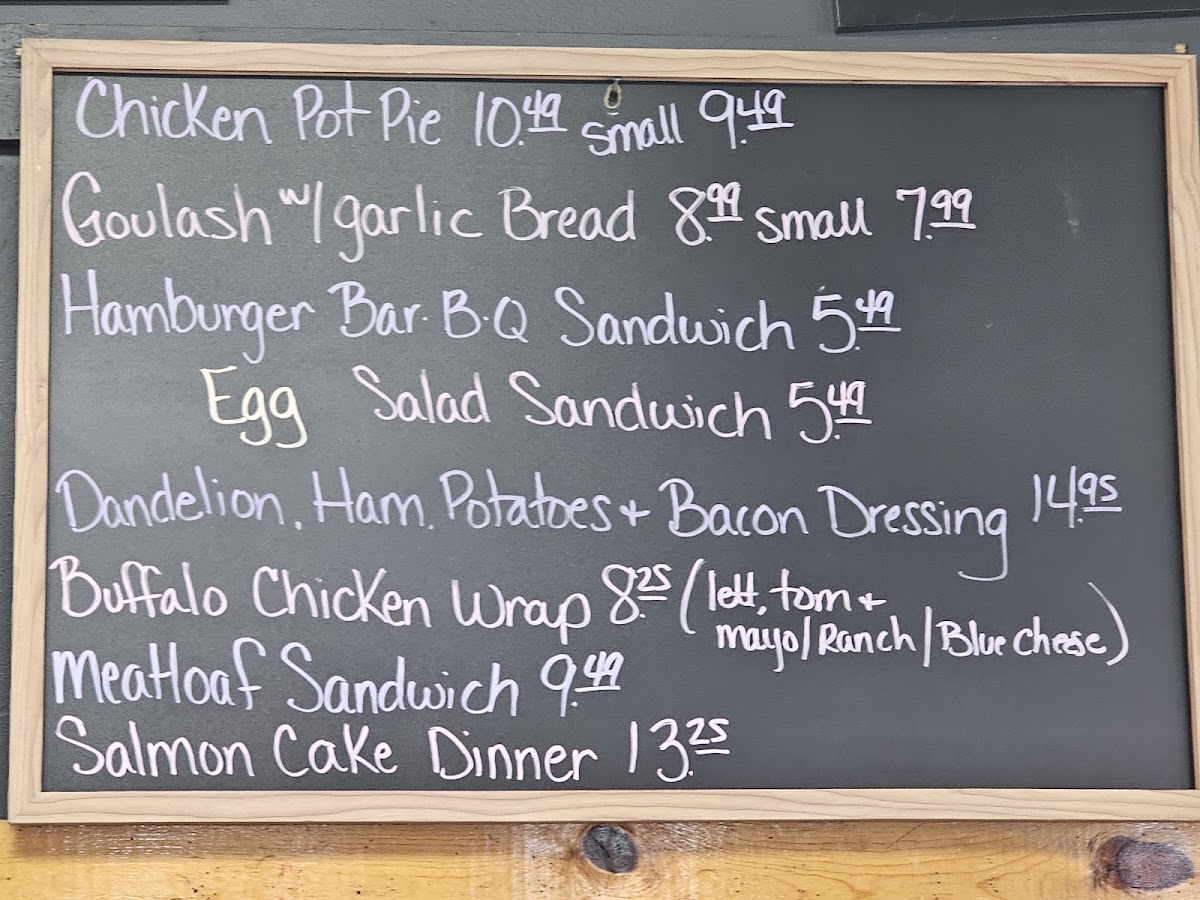 Chicken Pot Pie 10.49 small 9.49
Goulash w/garlic Bread 8.99 small 7.99
Hamburger Bar.B.Q Sandwich 5.49
Egg Salad Sandwich 5.49
Dandelion, Ham, Potatoes + Bacon Dressing 14.95
Buffalo Chicken Wrap 8.25 (lett, tom +
mayo/Ranch/Blue cheese)
Meatloaf Sandwich 9.49
Salmon Cake Dinner 13.25